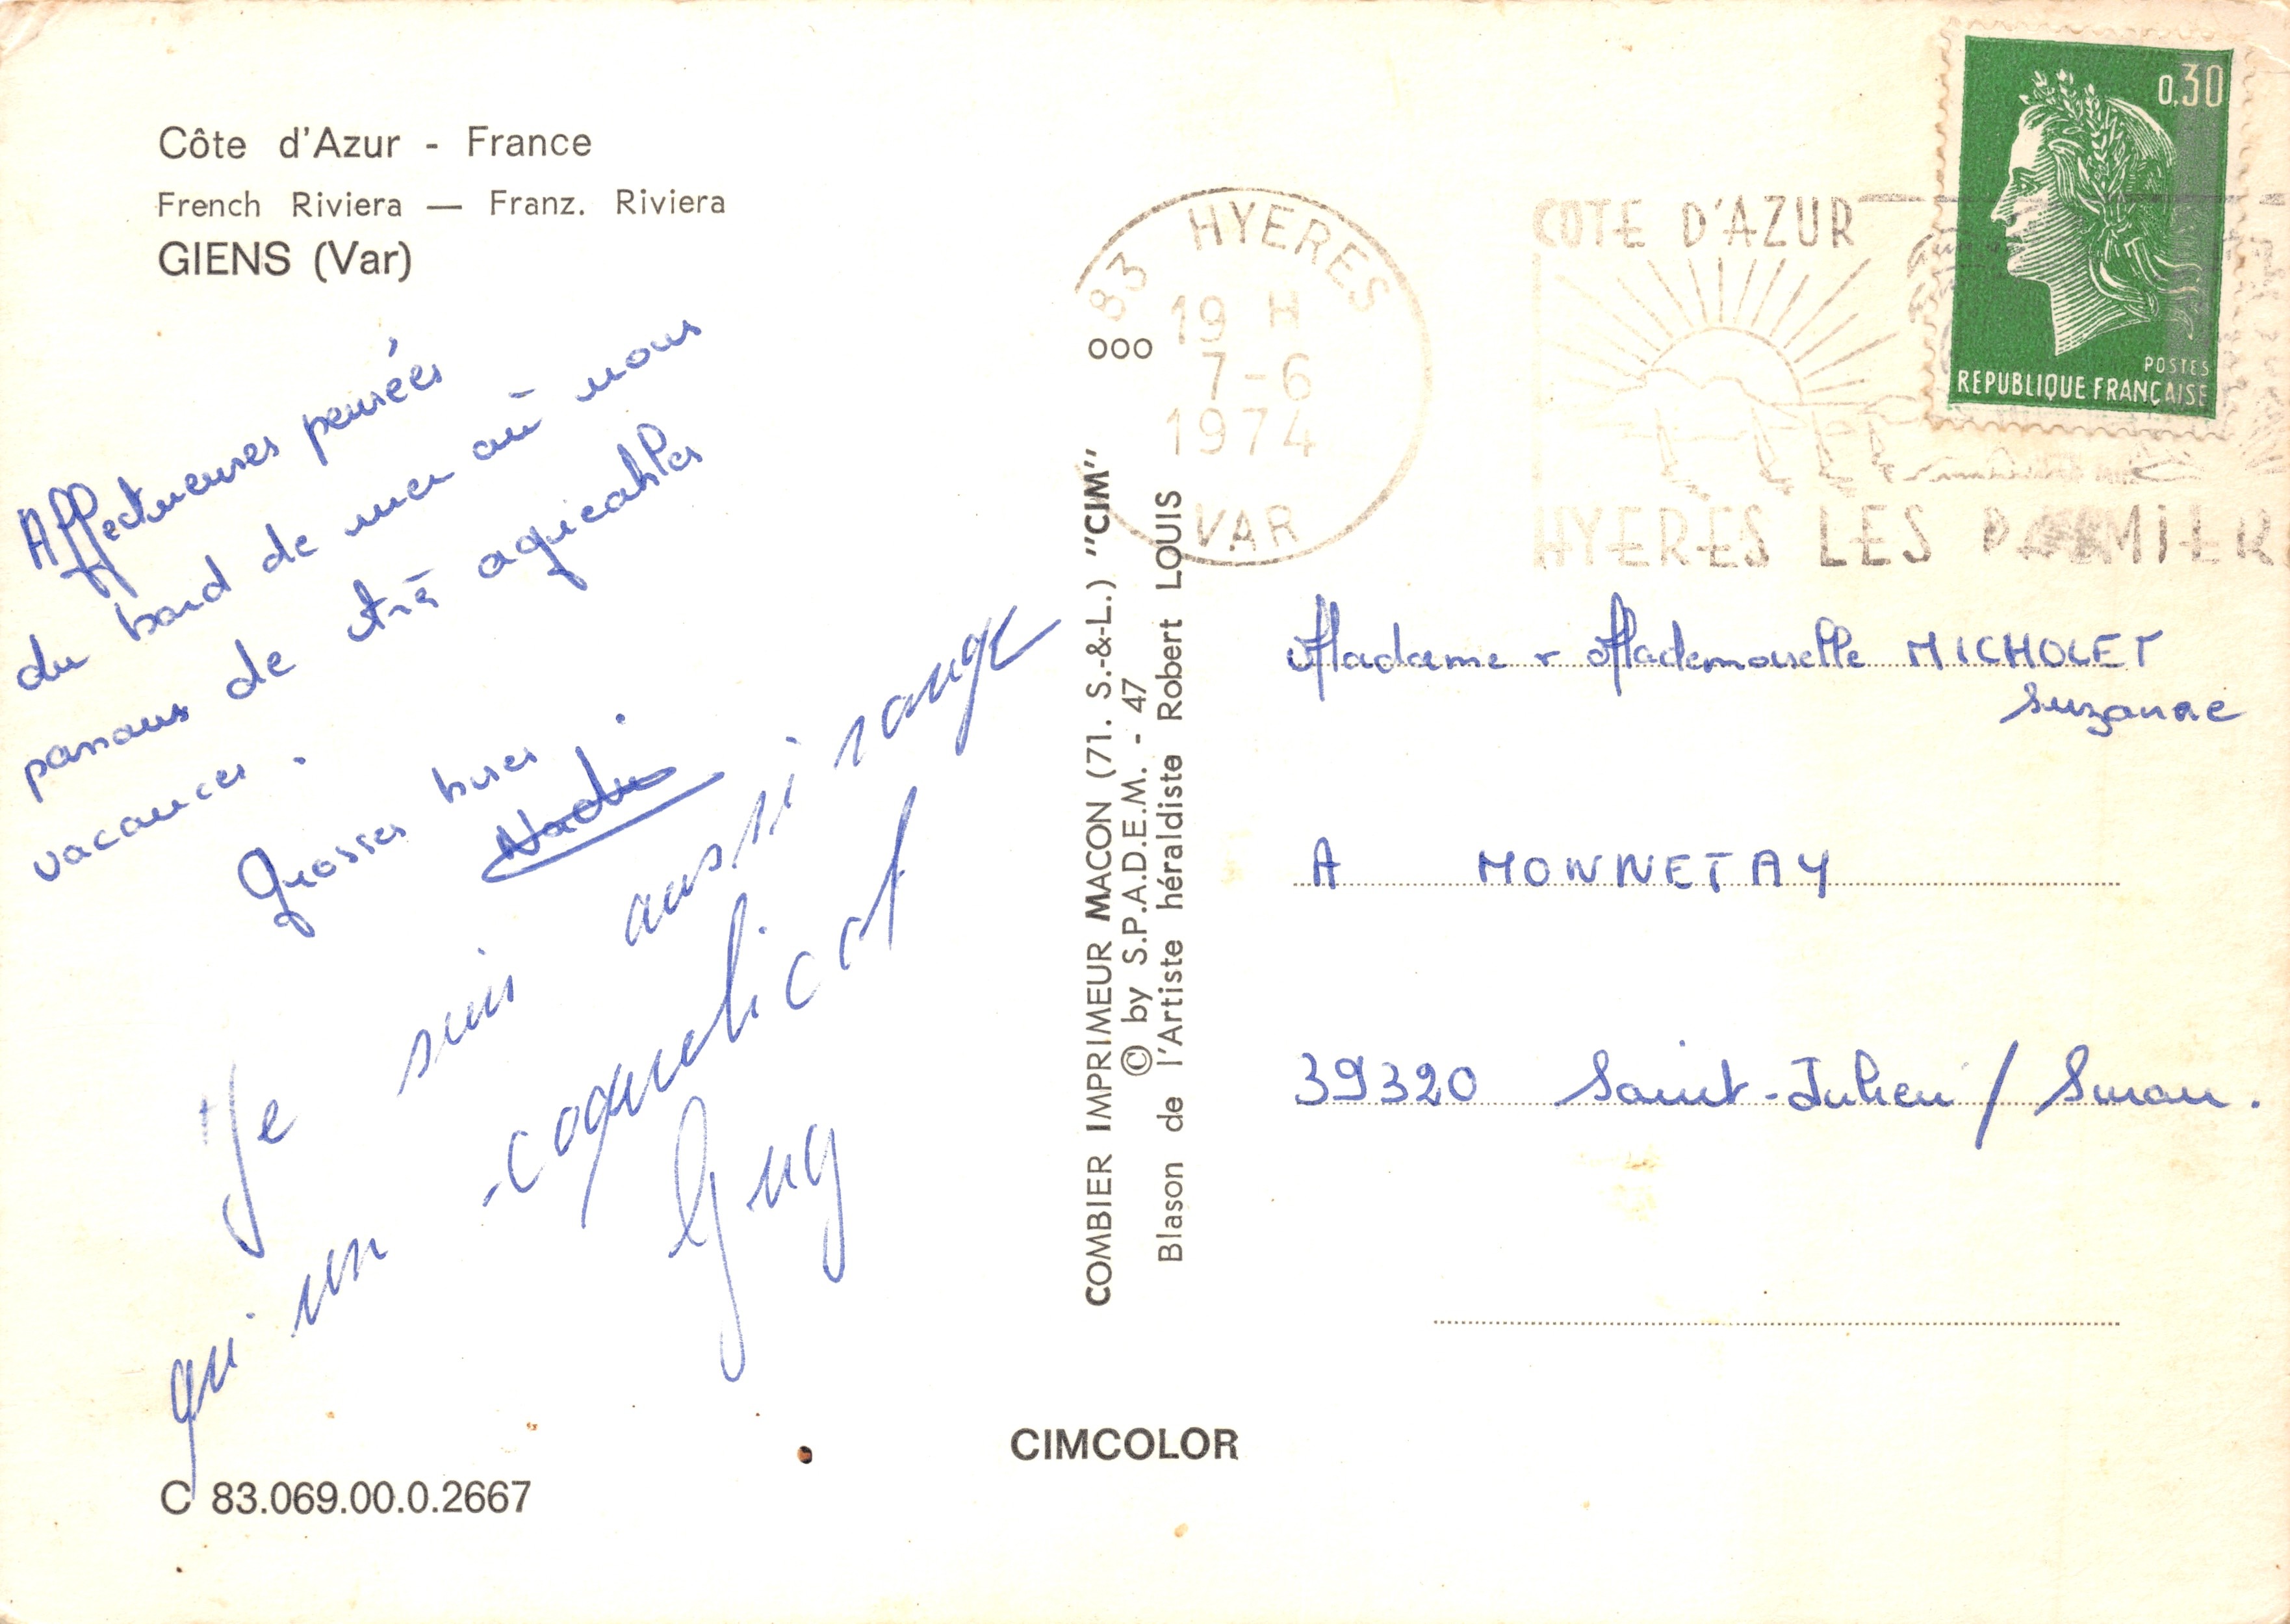 Côte d'Azur - France
French Riviera — Franz. Riviera
GIENS (Var)
Affectueuses pensées
du bord de mer où nous
passons de très agréables
vacances.
Grosses bises.
Nadi
Je suis aussi rouge
qu'un coquelicot
Guy
C 83.069.00.0.2667
COMBIER IMPRIMEUR MACON (71. S.-&-L.) "CIM"
© by S.P.A.D.E.M. - 47
Blason de l'Artiste héraldiste Robert LOUIS
CIMCOLOR
83 HYERES
19 H
7-6
1974
VAR
000
COTE D'AZUR
HYERES LES PALMIER
0,30
POSTES
REPUBLIQUE FRANÇAISE
Madame & Mademoiselle MICHOLET
Suzanne
A MONNETAY
39320 Saint-Julien / Suran.